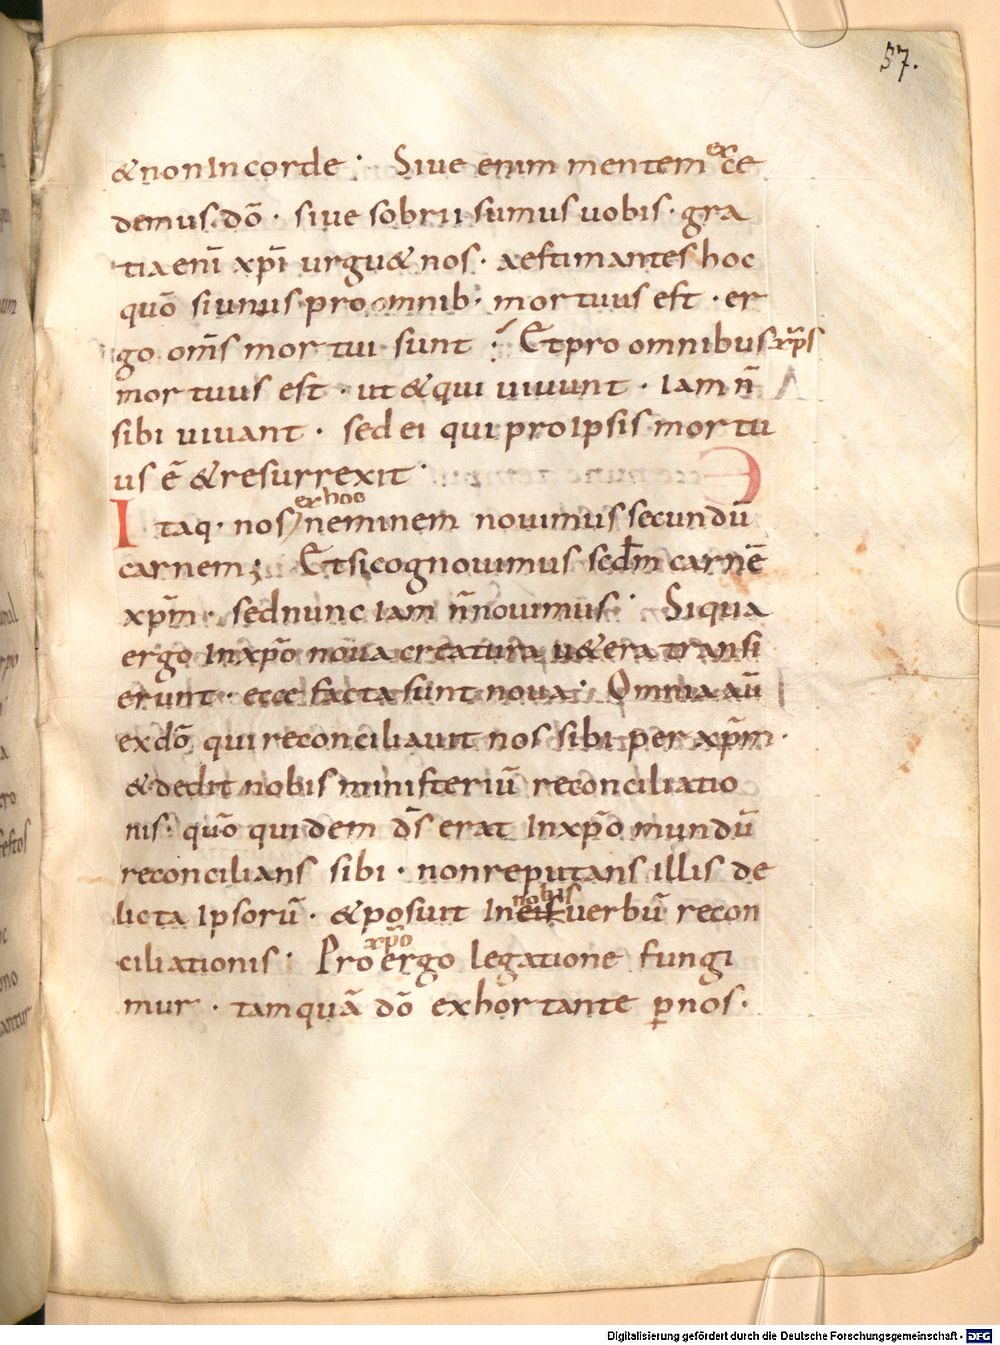 57.
& non In corde· Siue enim mentem ex ce
demus dō· siue sobrii sumus uobis· gra
tia enī xp̄i urgu& nos· aestimantes hoc
quō si unus pro omnib· mortuus est· er
go om̄s mortui sunt· Et pro omnibus xp̄s
mortuus est· ut & qui uiuunt· Iam n̄
sibi uiuant· sed ei qui pro Ipsis mortu
us ē & resurrexit·
ex hoc
Itaq· nos neminem nouimus secundū
carnem; Et si cognouimus secd̄m carnē
xp̄m· sed nunc Iam n̄ nouimus· Siqua
ergo In xp̄o noua creatura u&era transi
erunt· ecce facta sunt noua· Omnia aū
ex dō qui reconciliauit nos sibi per xp̄m·
& dedit nobis ministeriū reconciliatio
nis· quō quidem d̄s erat In xp̄o mundū
reconcilians sibi· non reputans illis de
nobis
licta Ipsorū· & posuit In eis uerbū recon
xp̄o
ciliationis· Pro ergo legatione fungi
mur· tamquā dō exhortante ꝑ nos·
Digitalisierung gefördert durch die Deutsche Forschungsgemeinschaft - DFG